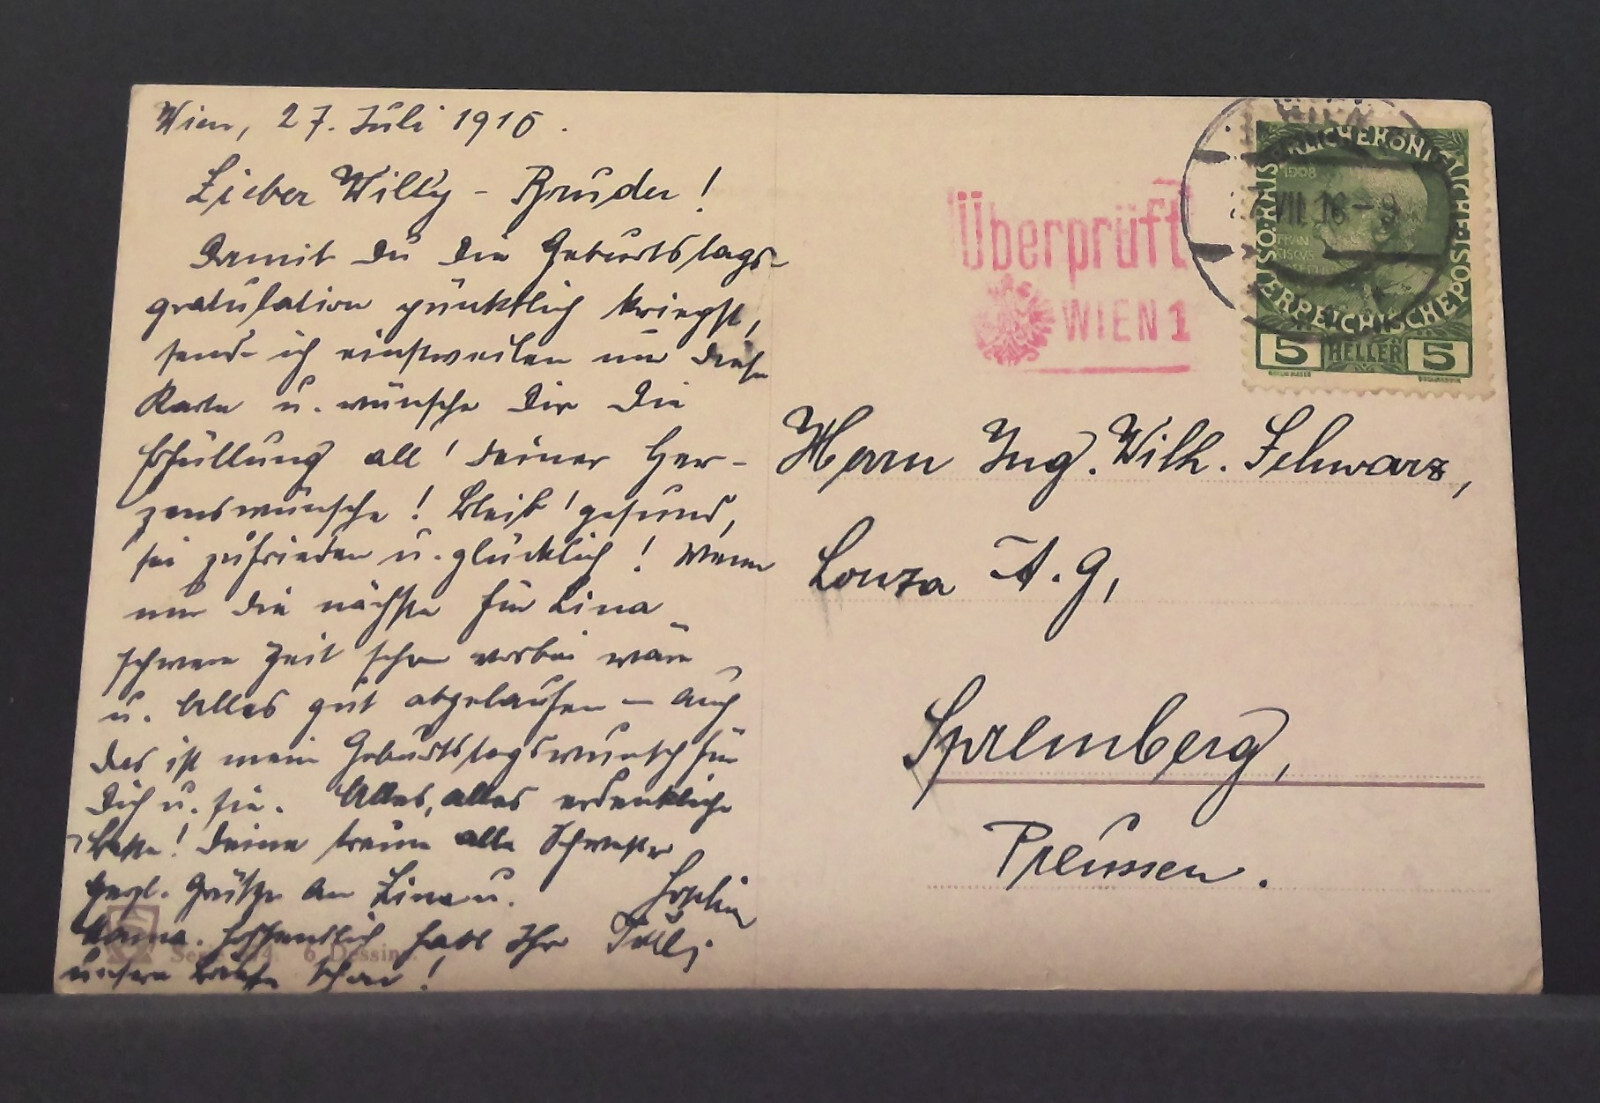 Wien, 27. Juli 1916.
Lieber Willy-Bruder!
Damit Du die Geburtstags-
gratulation pünktlich kriegst,
send ich einstweilen nur diese
Karte u. wünsche Dir die
Erfüllung all' Deiner Her-
zenswünsche! Bleib' gesund,
sei zufrieden u. glücklich! Wenn
nur die nächste für Lina
schwere Zeit schon vorbei wäre
u. Alles gut abgelaufen – auch
das ist mein Geburtstagswunsch für
Dich u. sie. Alles, alles erdenklich
Beste! Deine treue alte Schwester
Herzl. Grüße an Lina u. Sophie
Mama. Hoffentlich habt Ihr Tilli
unsere Briefe schon!
Serie 6 Dessins.
Überprüft
WIEN 1
WIEN
VII. 16-9
KAISERLICHE KÖNIGLICHE ÖSTERREICHISCHE POST
1908
5 HELLER 5
Herrn Ing. Wilh. Schwarz,
Lonza A. G,
Spremberg,
Preussen.